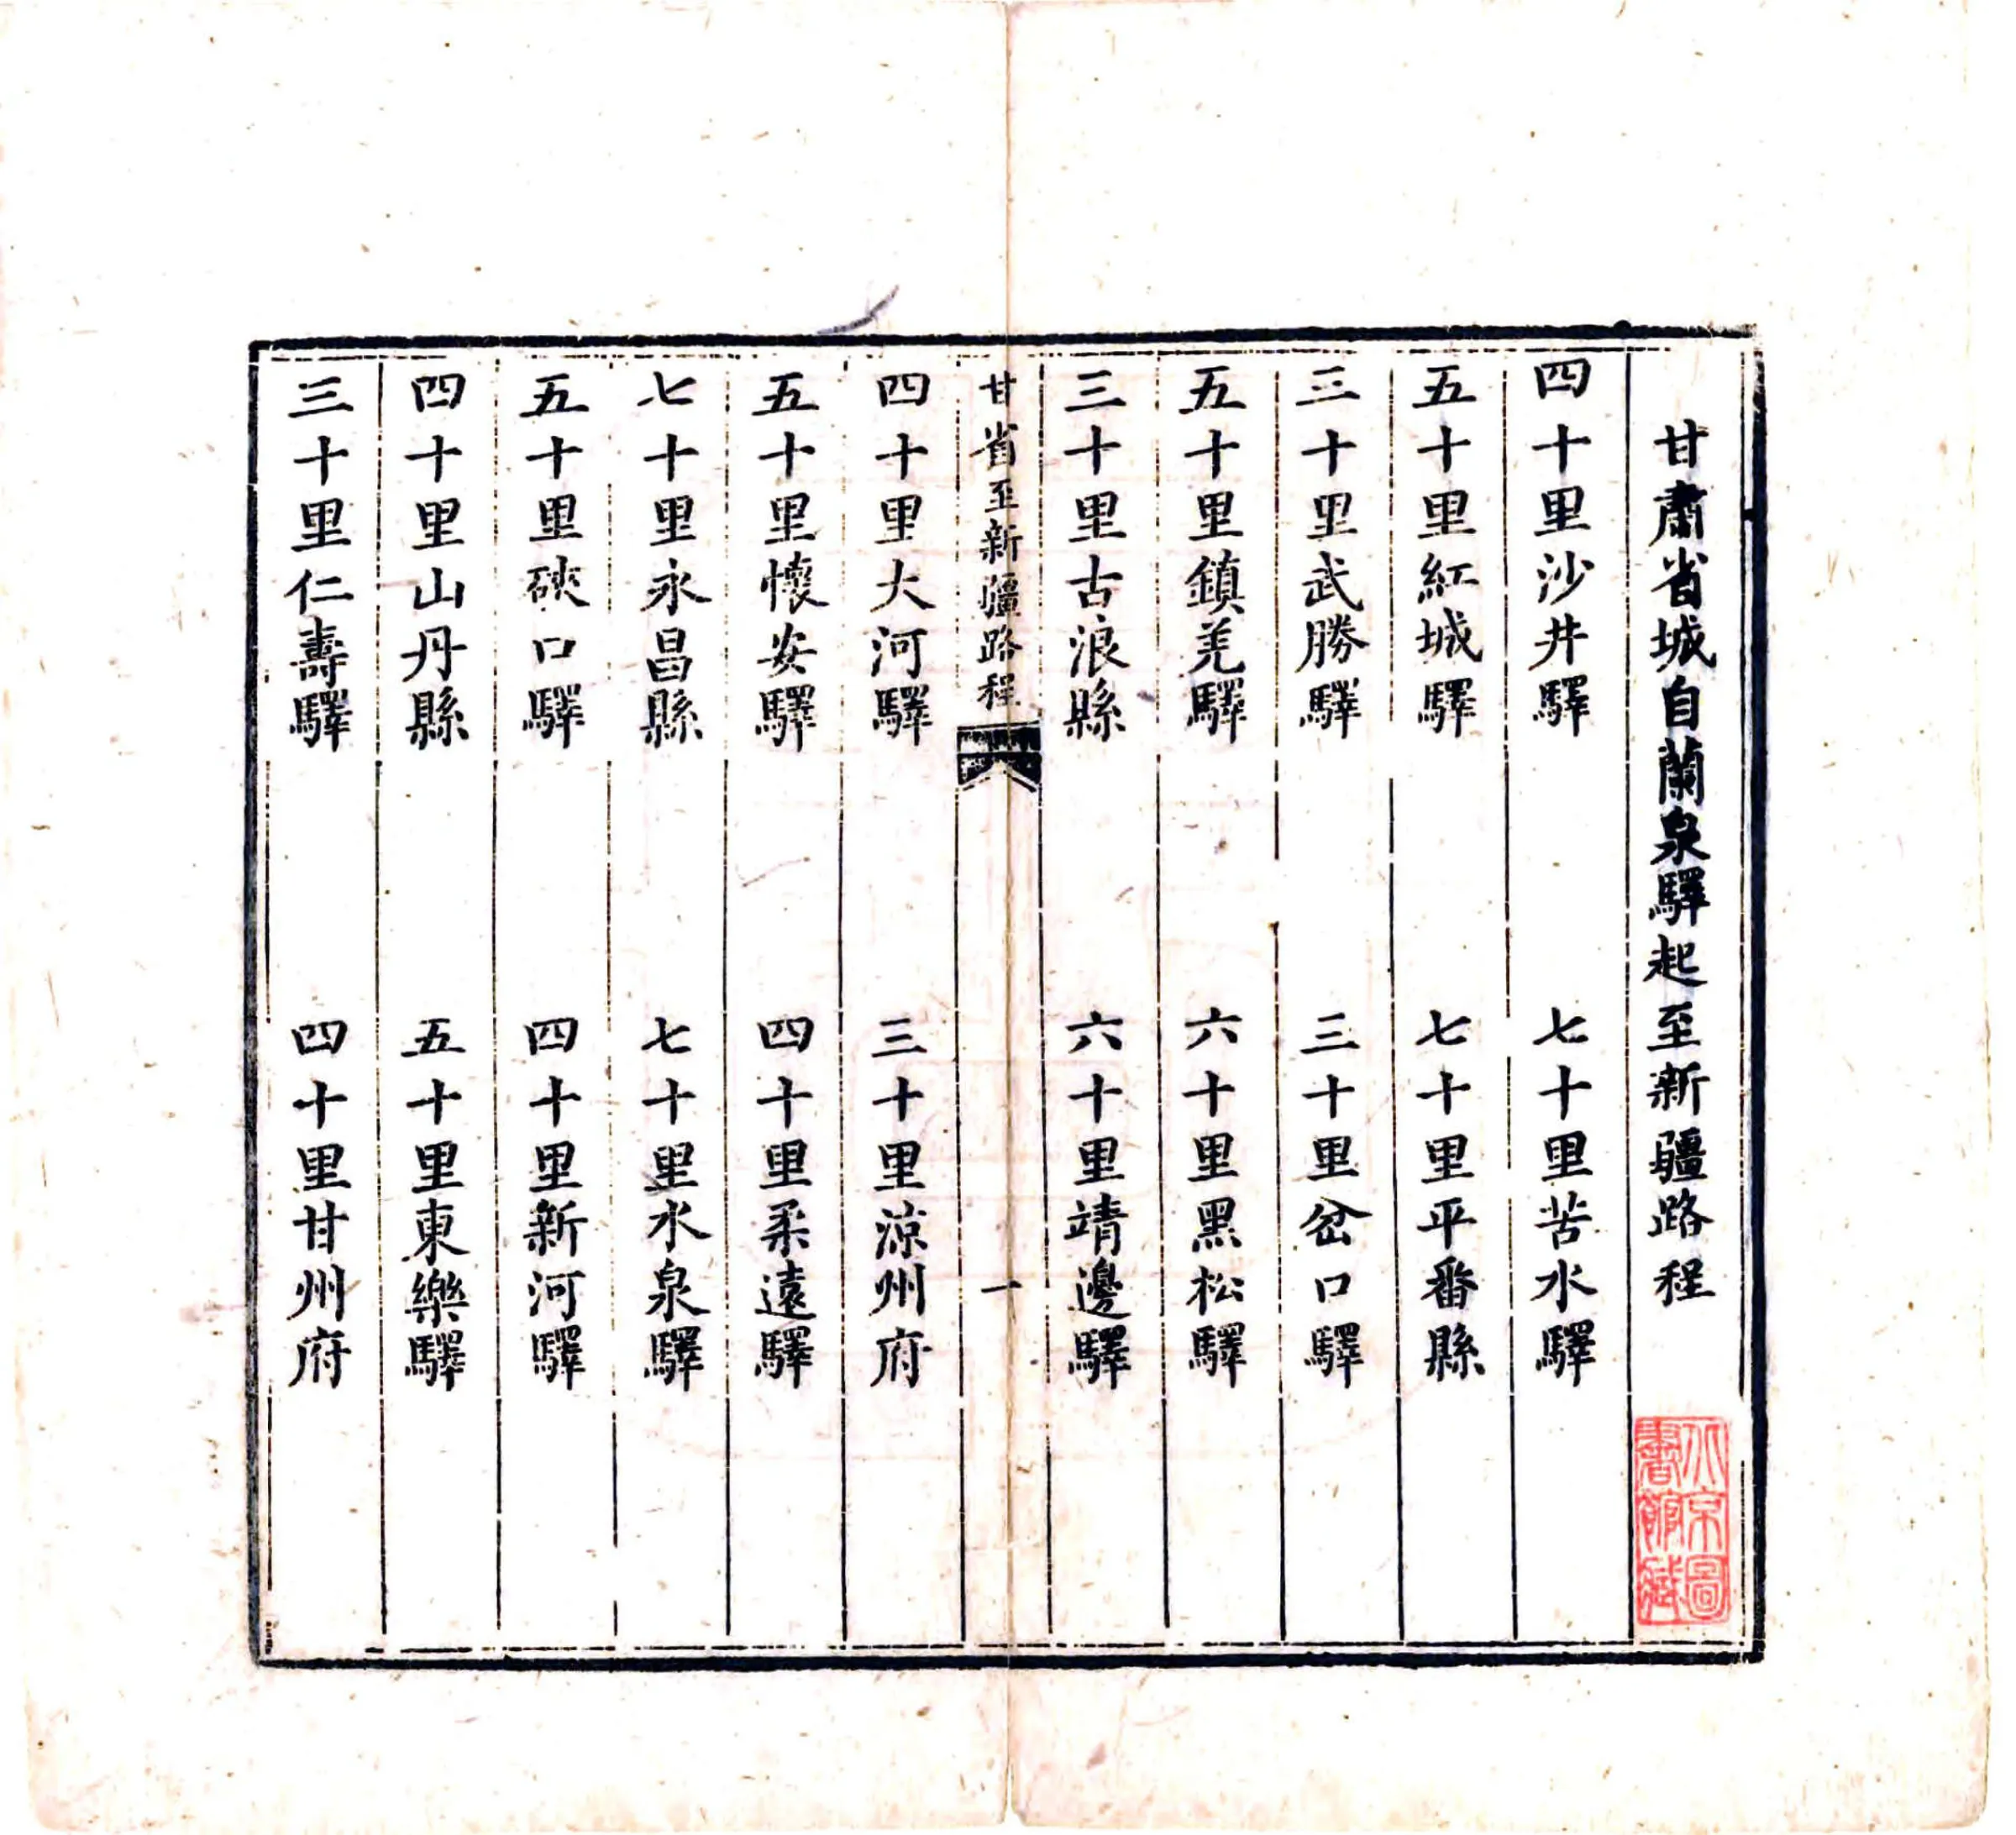 甘肅省城自蘭泉驛起至新疆路程
四十里沙井驛　七十里苦水驛
五十里紅城驛　七十里平番縣
三十里武勝驛　三十里岔口驛
五十里鎮羌驛　六十里黑松驛
三十里古浪縣　六十里靖邊驛
甘省至新疆路程　一
四十里大河驛　三十里涼州府
五十里懷安驛　四十里柔遠驛
七十里永昌縣　七十里水泉驛
五十里硤口驛　四十里新河驛
四十里山丹縣　五十里東樂驛
三十里仁壽驛　四十里甘州府
北京圖
書館藏